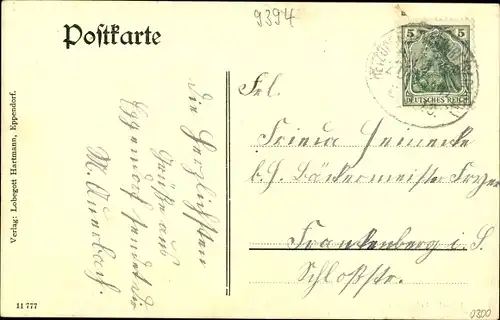 9394
Postkarte
5 5
DEUTSCHES REICH
Die herzlichsten
Grüße aus
Eppendorf sendet Dir
M. Auerbach.
Frl.
Frieda Heinecke
b. H. Bäckermeister
Frankenberg i. S.
Schloßstr.
Verlag: Lobegott Hartmann, Eppendorf.
11 777
0300